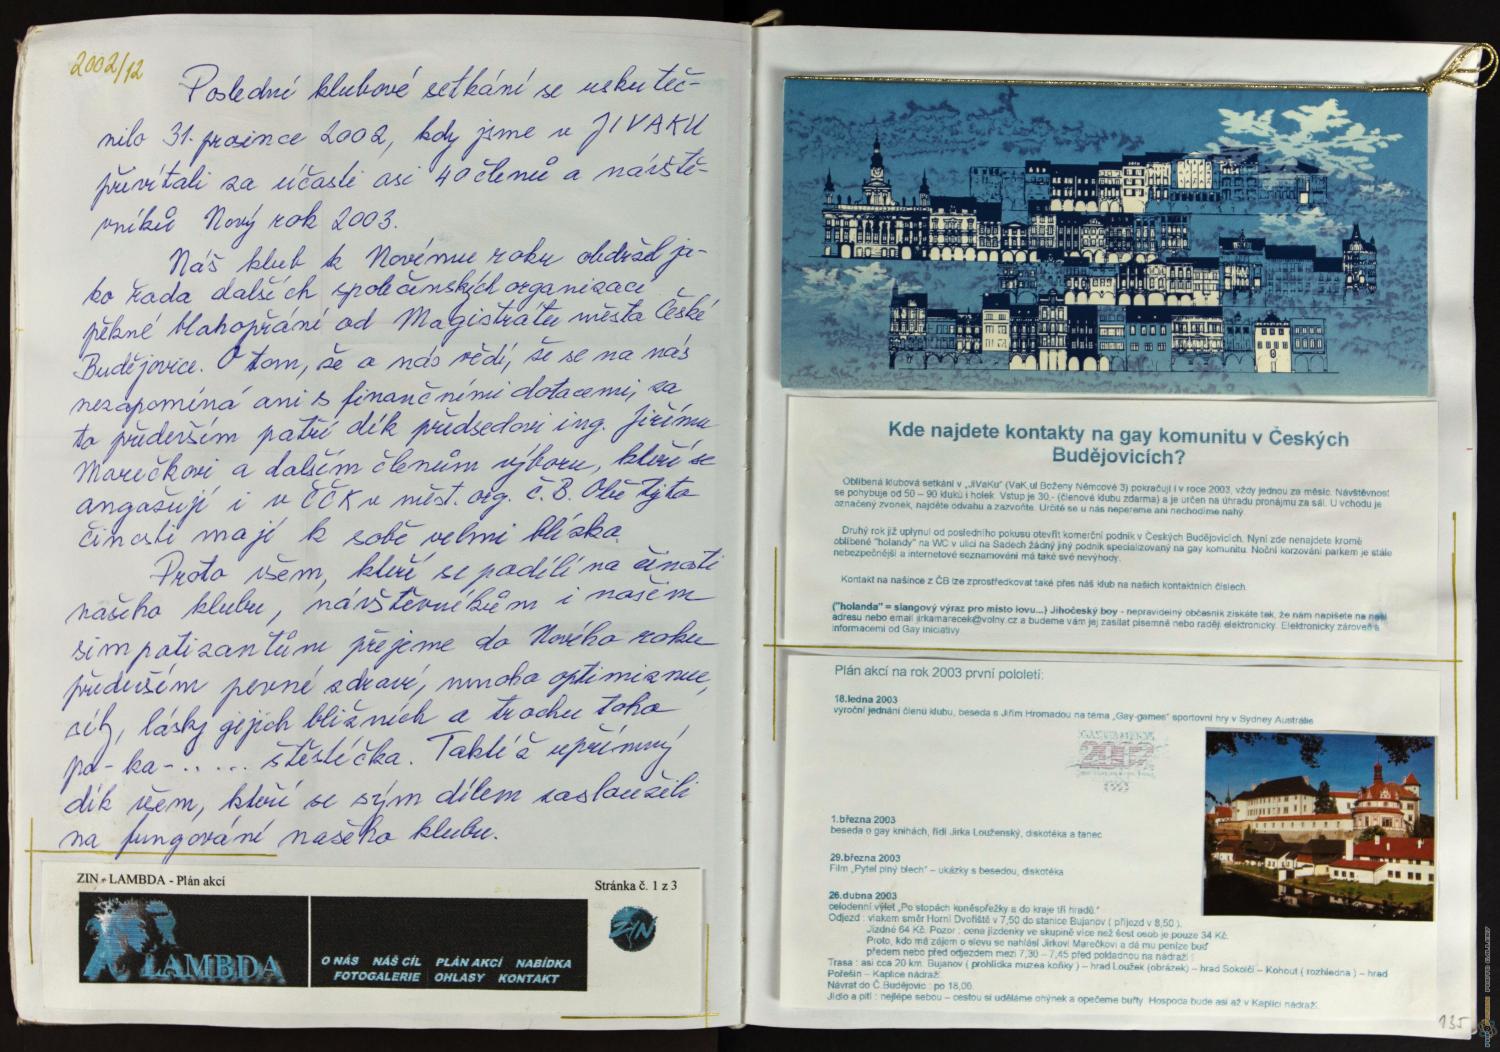 2002/12
Poslední klubové setkání se uskuteč-
nilo 31. prosince 2002, kdy jsme v JIVAKU
přivítali za účasti asi 40 členů a návště-
vníků Nový rok 2003.
Náš klub k Novému roku obdržel ja-
ko řada dalších společenských organizací
pěkné blahopřání od Magistrátu města České
Budějovice. O tom, že o nás vědí, že se na nás
nezapomíná ani s finančními dotacemi, za
to především patří dík předsedovi ing. Jiřímu
Marečkovi a dalším členům výboru, kteří se
angažují i v ČČK v měst. org. Č.B. Obě tyto
činosti mají k sobě velmi blízko.
Proto všem, kteří se podílí na činosti
našeho klubu, návštěvníkům i našem
simpatizantům přejeme do Nového roku
především pevné zdraví, mnoho optimizmu,
síly, lásky jejich bližních a trochu toho
po-ka-..... štěstíčka. Taktéž upřímný
dík všem, kteří se svým dílem zasloužili
na fungování našeho klubu.
ZIN - LAMBDA - Plán akcí
Stránka č. 1 z 3
LAMBDA
O NÁS NÁŠ CÍL PLÁN AKCÍ NABÍDKA
FOTOGALERIE OHLASY KONTAKT
ZIN
Kde najdete kontakty na gay komunitu v Českých
Budějovicích?
Oblíbená klubová setkání v „JiVaKu“ (VaK,ul Boženy Němcové 3) pokračují i v roce 2003, vždy jednou za měsíc. Návštěvnost
se pohybuje od 50 – 90 kluků i holek. Vstup je 30,- (členové klubu zdarma) a je určen na úhradu pronájmu za sál. U vchodu je
označený zvonek, najděte odvahu a zazvoňte. Určitě se u nás nepereme ani nechodíme nahý.
Druhý rok již uplynul od posledního pokusu otevřít komerční podnik v Českých Budějovicích. Nyní zde nenajdete kromě
oblíbené "holandy" na WC v ulici na Sadech žádný jiný podnik specializovaný na gay komunitu. Noční korzování parkem je stále
nebezpečnější a internetové seznamování má také své nevýhody.
Kontakt na našince z ČB lze zprostředkovat také přes náš klub na našich kontaktních číslech.
("holanda" = slangový výraz pro místo lovu...) Jihočeský boy - nepravidelný občasník získáte tak, že nám napíšete na naší
adresu nebo email jirkamarecek@volny.cz a budeme vám jej zasílat písemně nebo raději elektronicky. Elektronicky zároveň s
informacemi od Gay iniciativy
Plán akcí na rok 2003 první pololetí:
18.ledna 2003
výroční jednání členů klubu, beseda s Jiřím Hromadou na téma „Gay-games“ sportovní hry v Sydney Austrálie
1.března 2003
beseda o gay knihách, řídí Jirka Louženský, diskotéka a tanec
29.března 2003
Film „Pytel plný blech“ – ukázky s besedou, diskotéka
26.dubna 2003
celodenní výlet „Po stopách koněspřežky a do kraje tří hradů.“
Odjezd : vlakem směr Horní Dvořiště v 7,50 do stanice Bujanov ( příjezd v 8,50 ).
Jízdné 64 Kč. Pozor : cena jízdenky ve skupině více než šest osob je pouze 34 Kč.
Proto, kdo má zájem o slevu se nahlásí Jirkovi Marečkovi a dá mu peníze buď
předem nebo před odjezdem mezi 7,30 – 7,45 před pokladnou na nádraží
Trasa : asi cca 20 km. Bujanov ( prohlídka muzea koňky ) – hrad Loužek (obrázek) – hrad Sokolčí – Kohout ( rozhledna ) – hrad
Pořešín – Kaplice nádraží.
Návrat do Č.Budějovic : po 18,00.
Jídlo a pití : nejlépe sebou – cestou si uděláme ohýnek a opečeme buřty. Hospoda bude asi až v Kaplici nádraží.
135